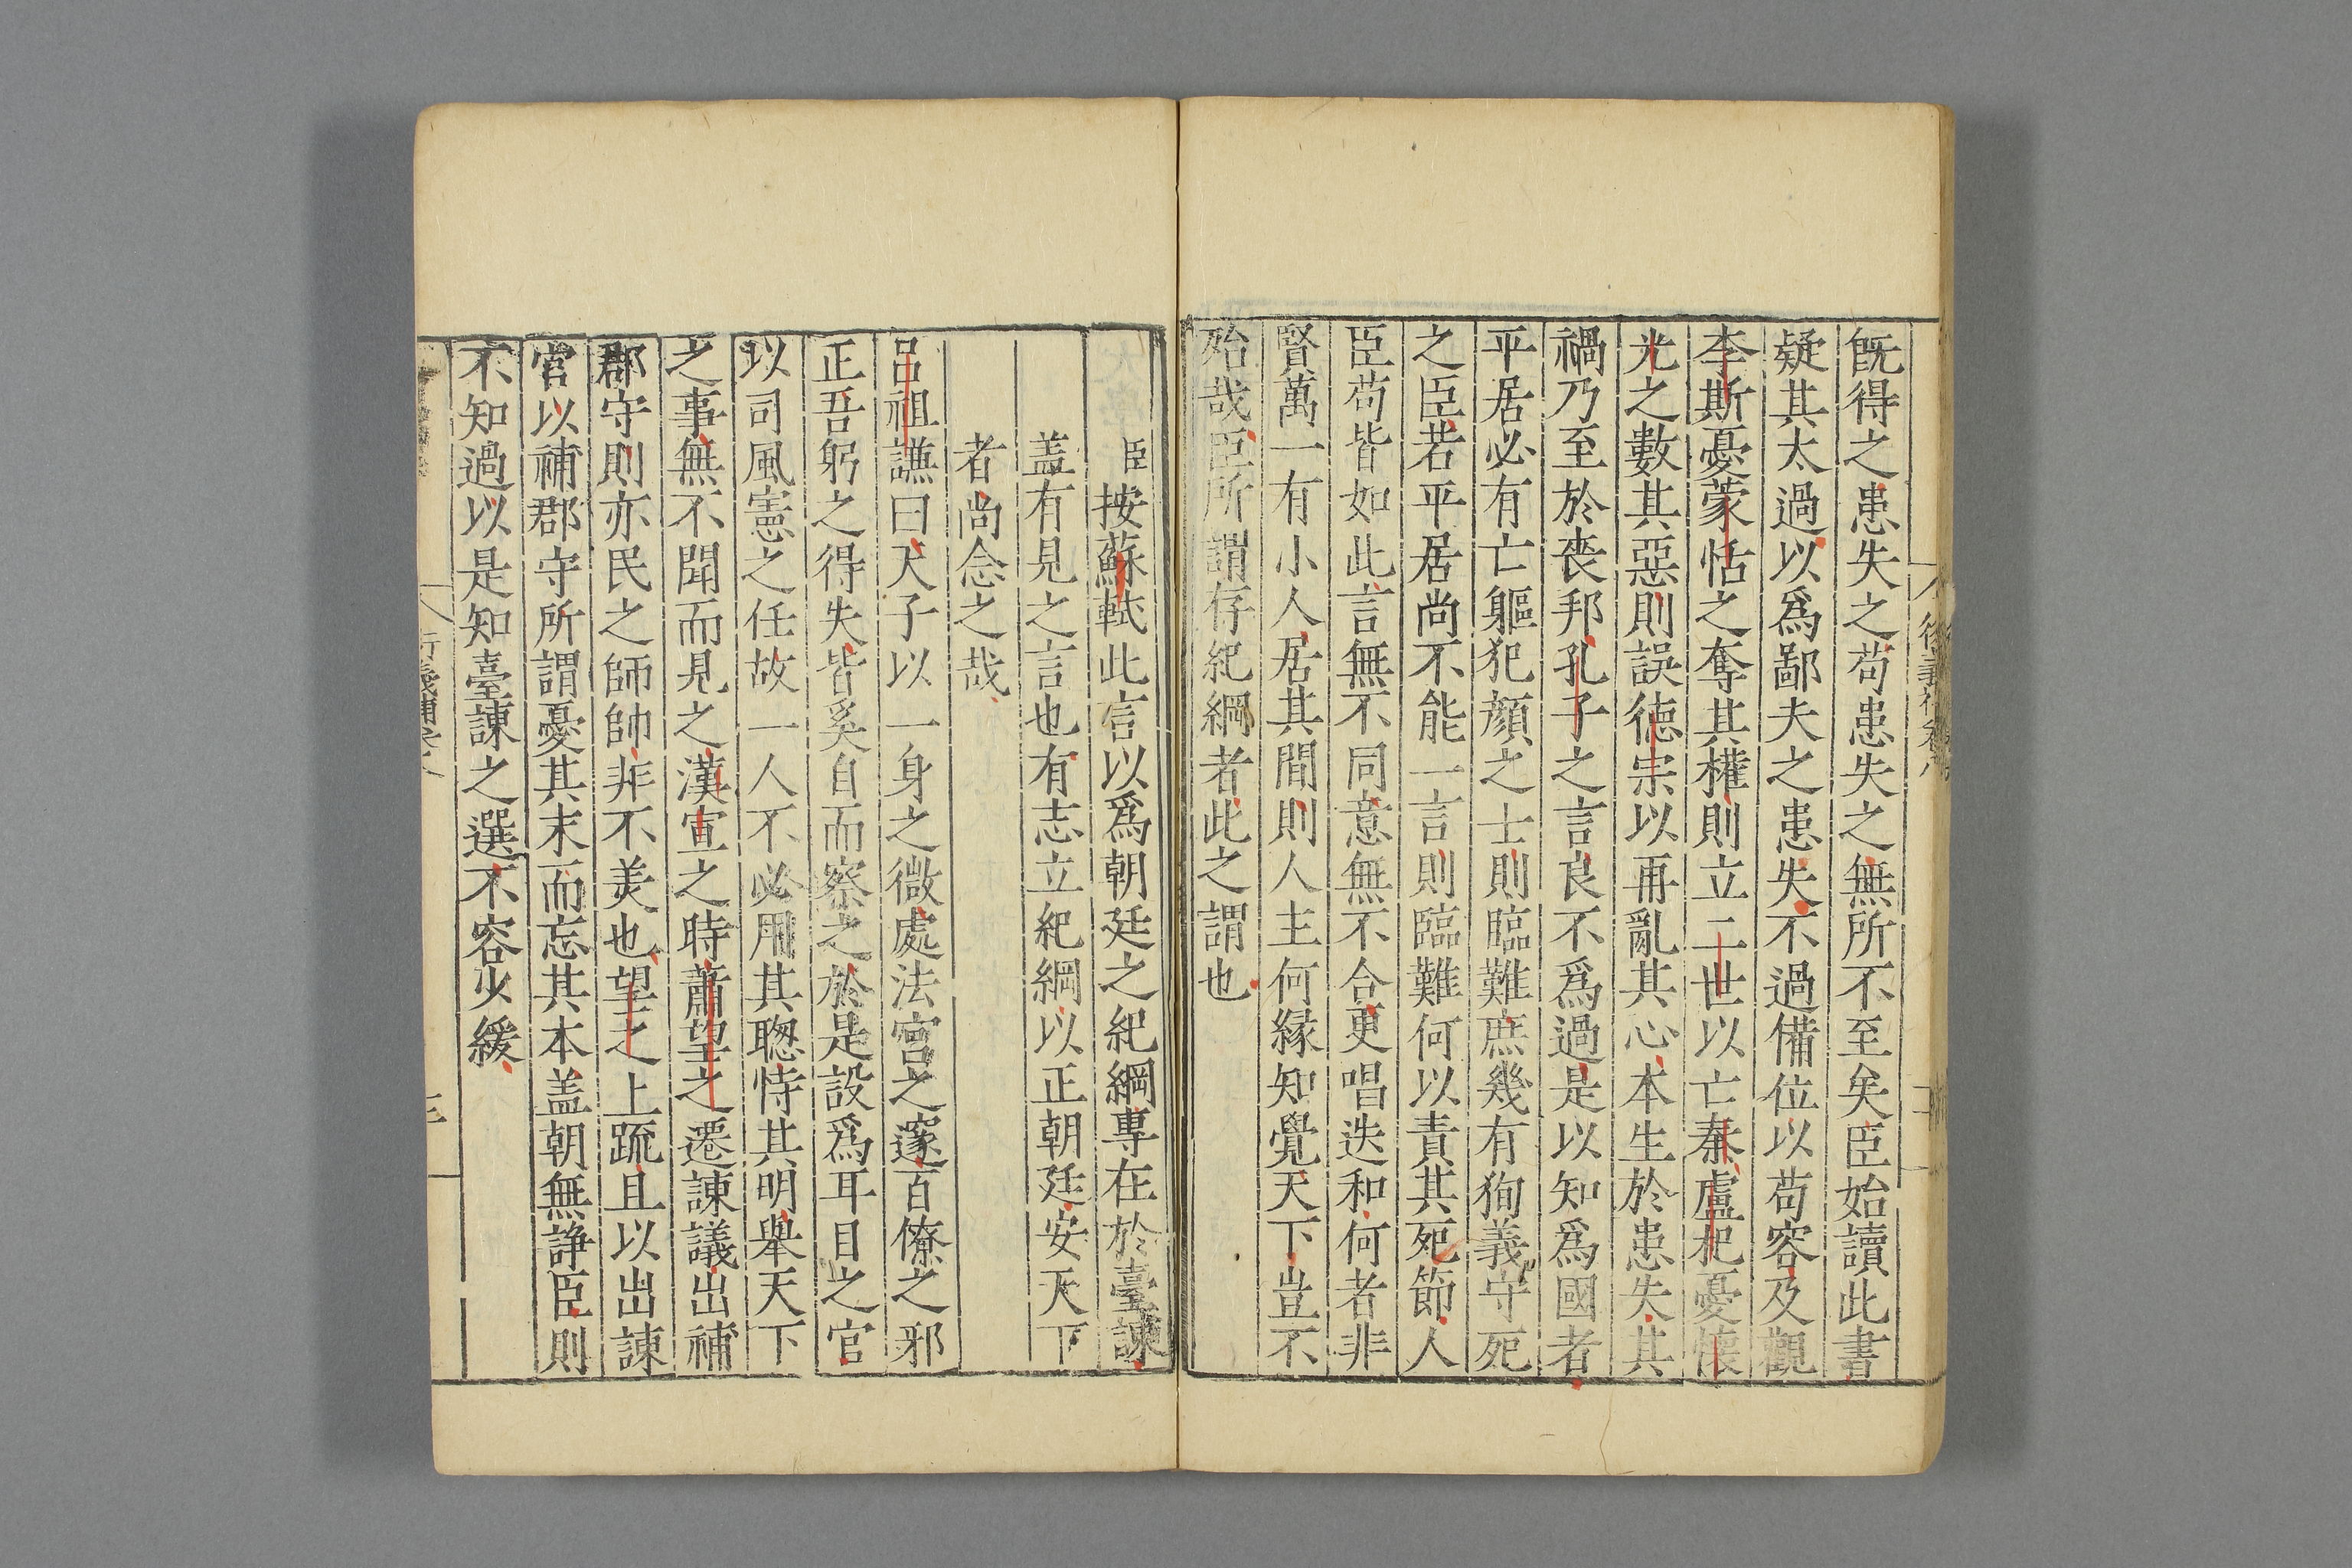 旣得之患失之苟患失之無所不至矣臣始讀此書
疑其太過以爲鄙夫之患失不過備位以苟容及觀
李斯憂蒙恬之奪其權則立二世以亡秦盧杞憂懷
光之數其惡則誤徳宗以再亂其心本生於患失其
禍乃至於喪邦孔子之言良不爲過是以知爲國者
平居必有亡軀犯顔之士則臨難庶幾有狥義守死
之臣若平居尚不能一言則臨難何以責其死節人
臣苟皆如此言無不同意無不合更唱迭和何者非
賢萬一有小人居其間則人主何縁知覺天下豈不
殆哉臣所謂存紀綱者此之謂也
臣按蘇軾此言以爲朝廷之紀綱專在於臺諫
盖有見之言也有志立紀綱以正朝廷安天下
者尚念之哉
呂祖謙曰天子以一身之微處法宮之邃百僚之邪
正吾躬之得失皆奚自而察之於是設爲耳目之官
以司風憲之任故一人不必用其聦恃其明舉天下
之事無不聞而見之漢宣之時蕭望之遷諫議出補
郡守則亦民之師帥非不美也望之上䟽且以出諫
官以補郡守所謂憂其末而忘其本盖朝無諍臣則
不知過以是知臺諫之選不容少緩